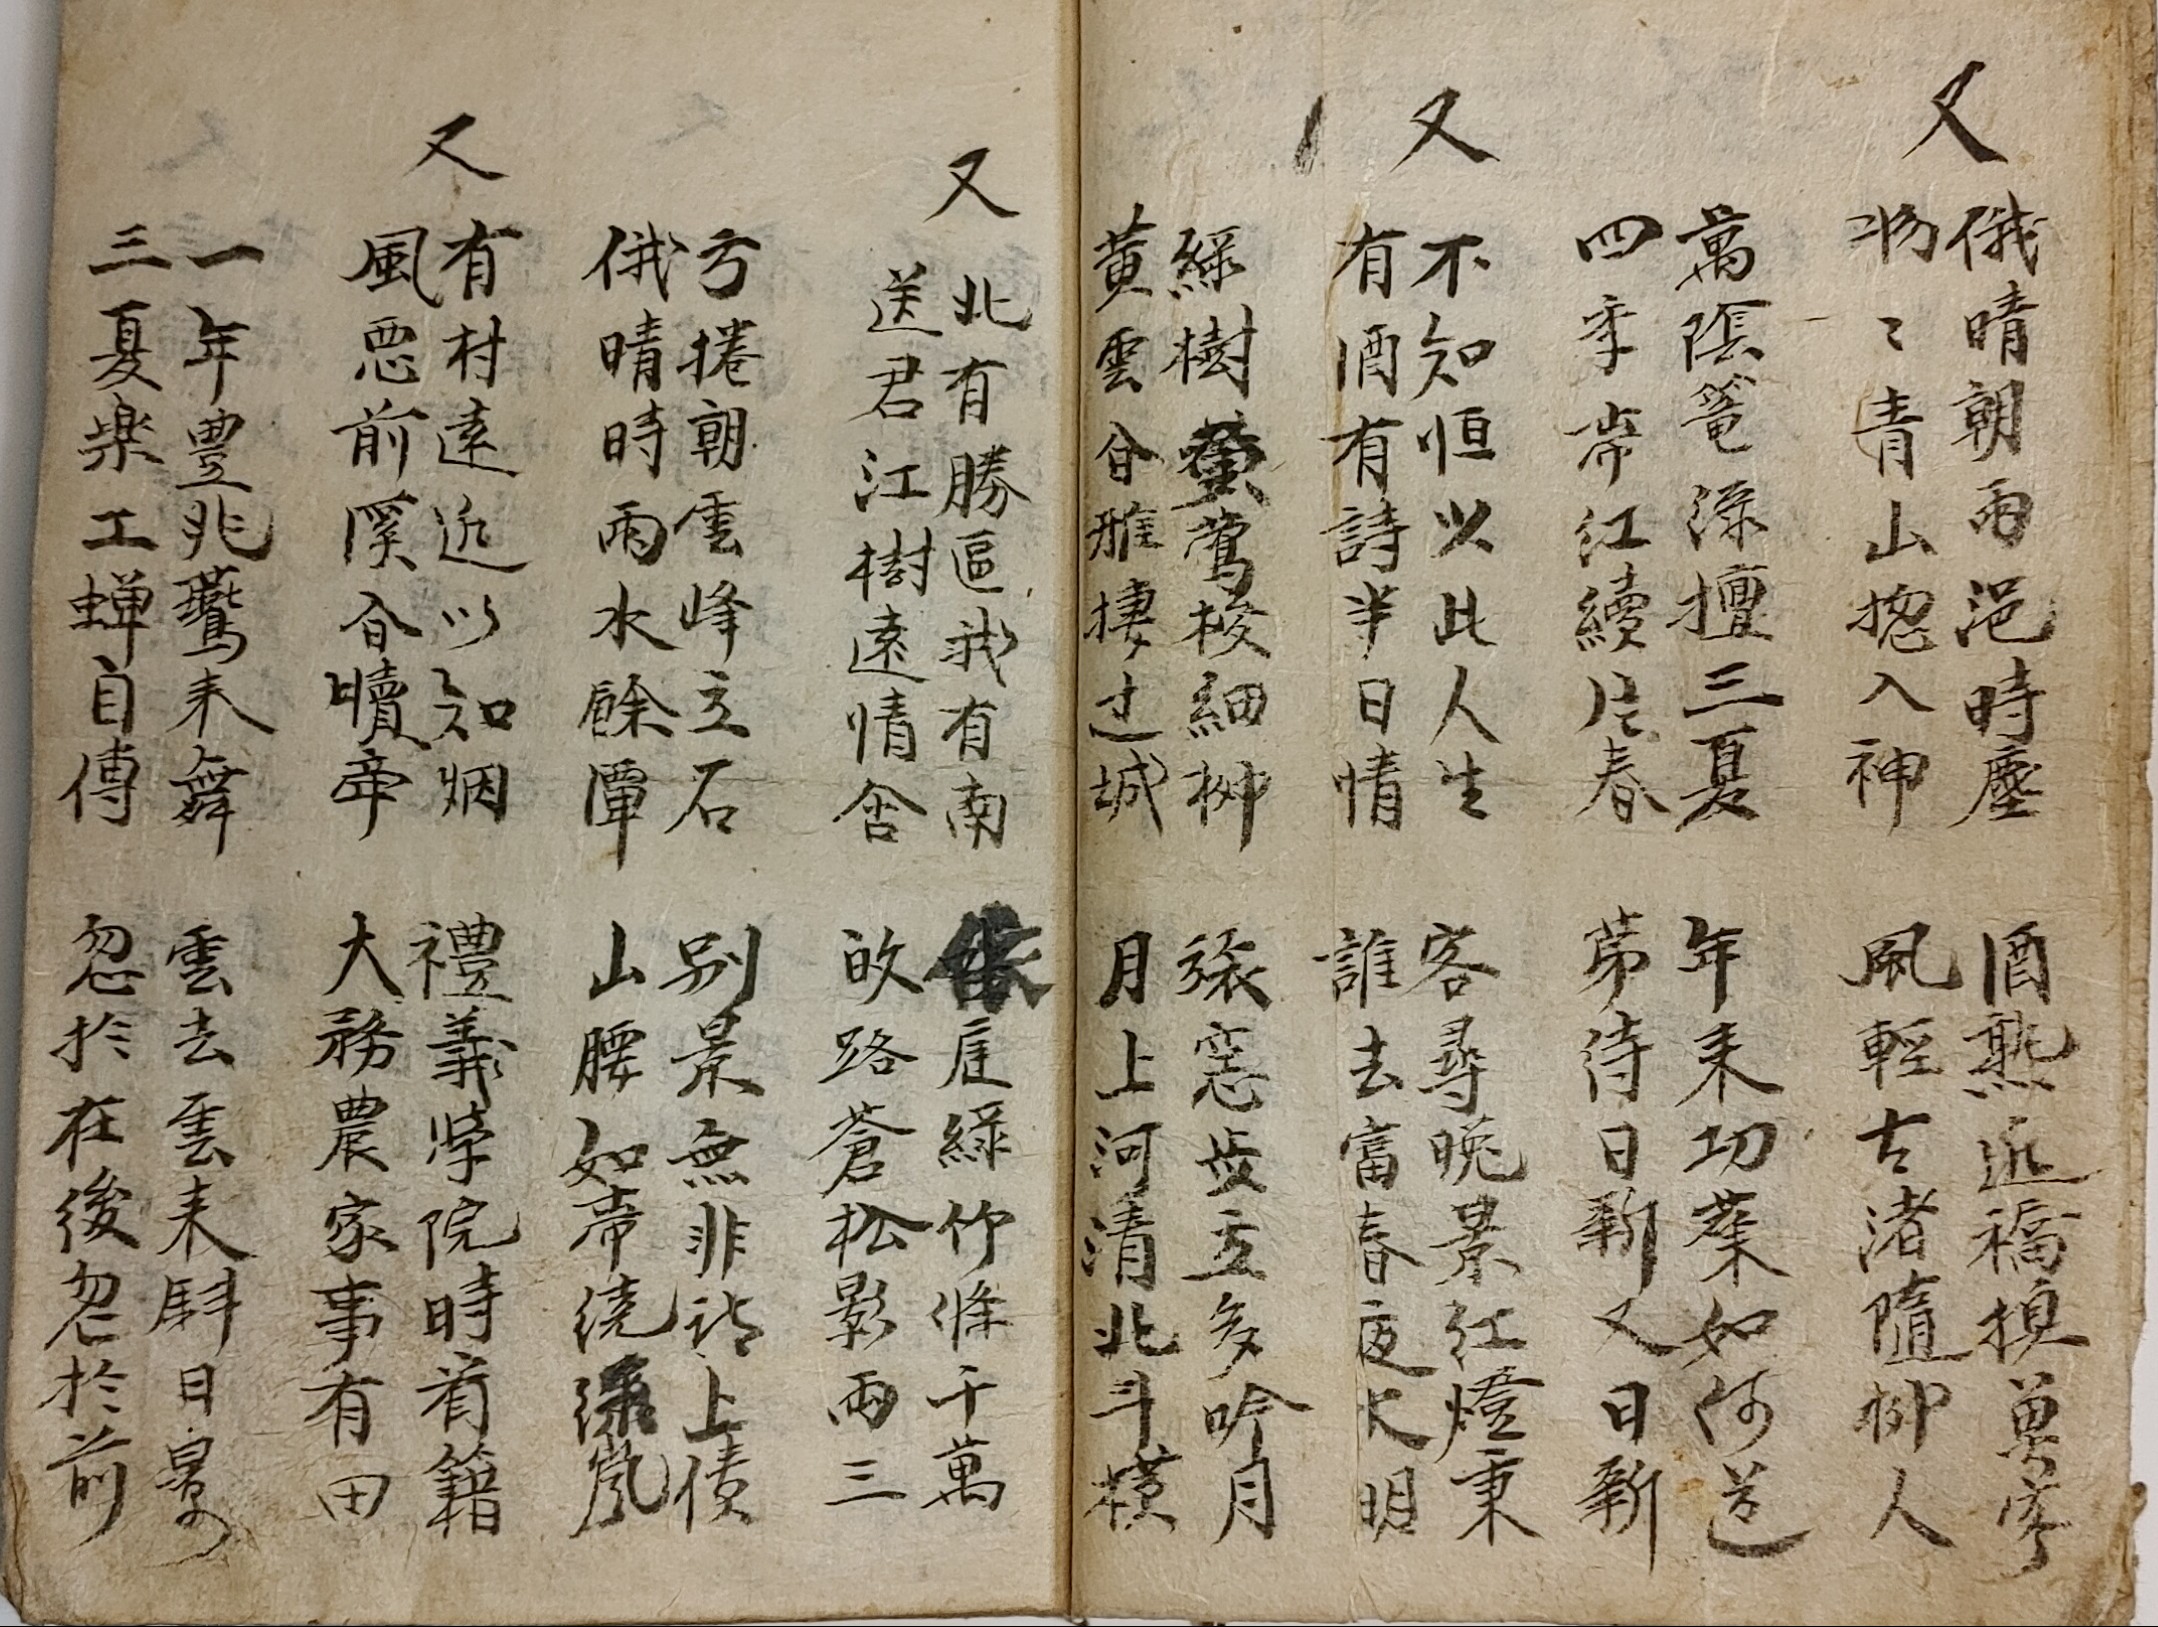 又
俄晴朝雨浥時塵 酒熟近福換萬家
物〻青山揔入神 風輕古渚隨柳人
萬陰篭深擅三夏 年来功業如何道
四季常紅續片春 第待日新又日新
又
不知恒以此人生 客尋晩景紅燈秉
有酒有詩半日情 誰去富春夜大明
綠樹鶯梭細柳 張窓步立多吟月
黃雲合雅捿过城 月上河清北斗橫
又
北有勝區我有南 崖綠竹條千萬
送君江樹遠情含 故路蒼松影兩三
方捲朝雲峰立石 别景無非詩上債
俄晴時雨水餘潭 山腰如帶繞嵐
又
有村遠近以知烟 禮義學院時有籍
風惡前溪合犢牽 大務農家事有田
一年豊兆鸎来舞 雲去雲来斜日景
三夏樂工蟬自傳 忽於在後忽於前